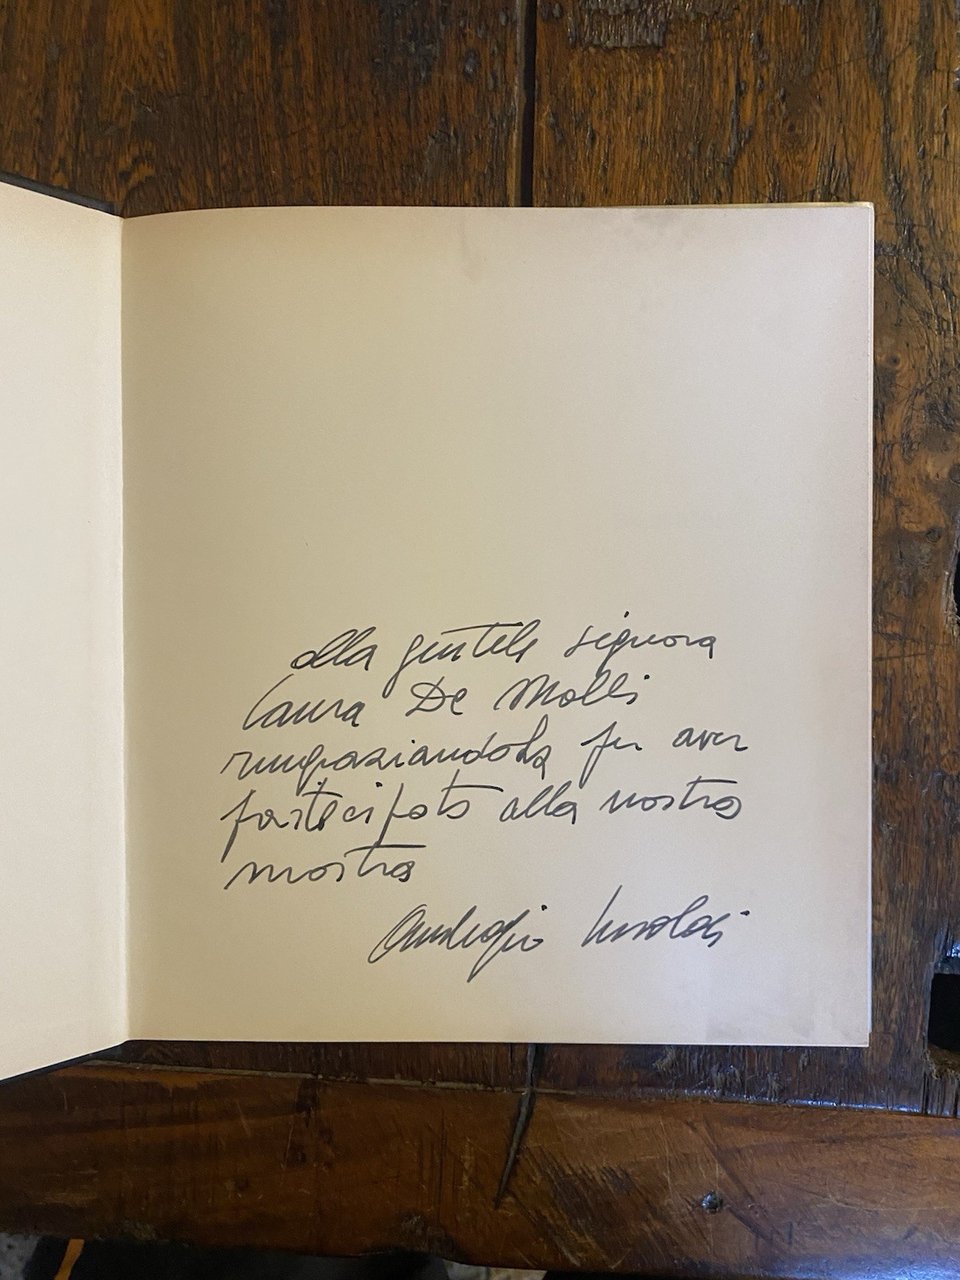 alla gentile signora
Laura De Molli
ringraziandola per aver
partecipato alla nostra
mostra
Ambrogio